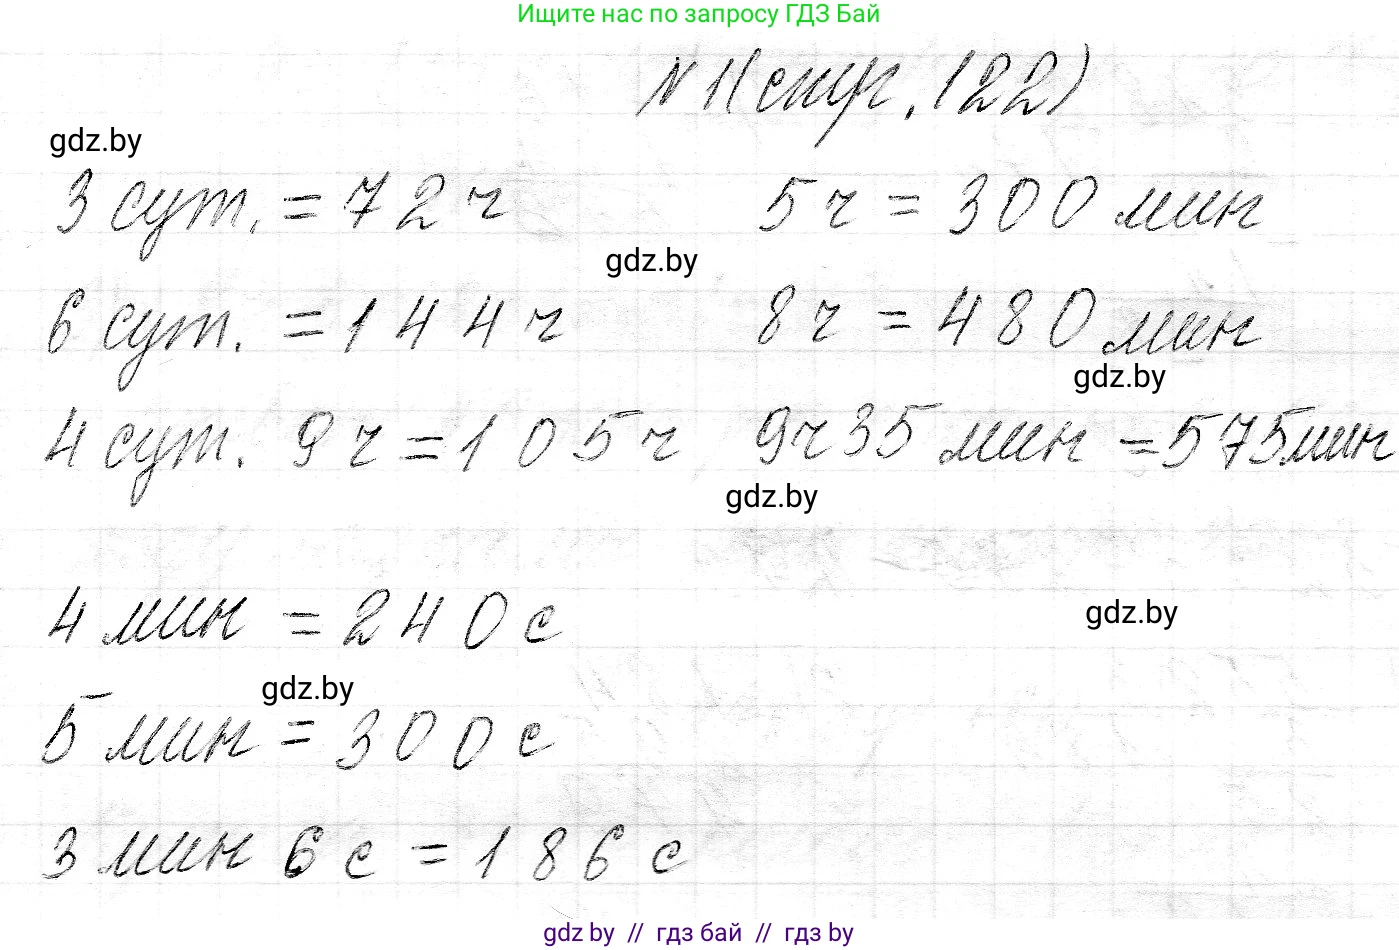 Ищите нас по запросу ГДЗ Бай
№ 1 (стр. 122)
gdz.by
3 сут. = 72 ч 5 ч = 300 мин
gdz.by
6 сут. = 144 ч 8 ч = 480 мин
gdz.by
4 сут. 9 ч = 105 ч 9 ч 35 мин = 575 мин
gdz.by
4 мин = 240 с
gdz.by
gdz.by
5 мин = 300 с
3 мин 6 с = 186 с
gdz by // гдз бай // гдз by